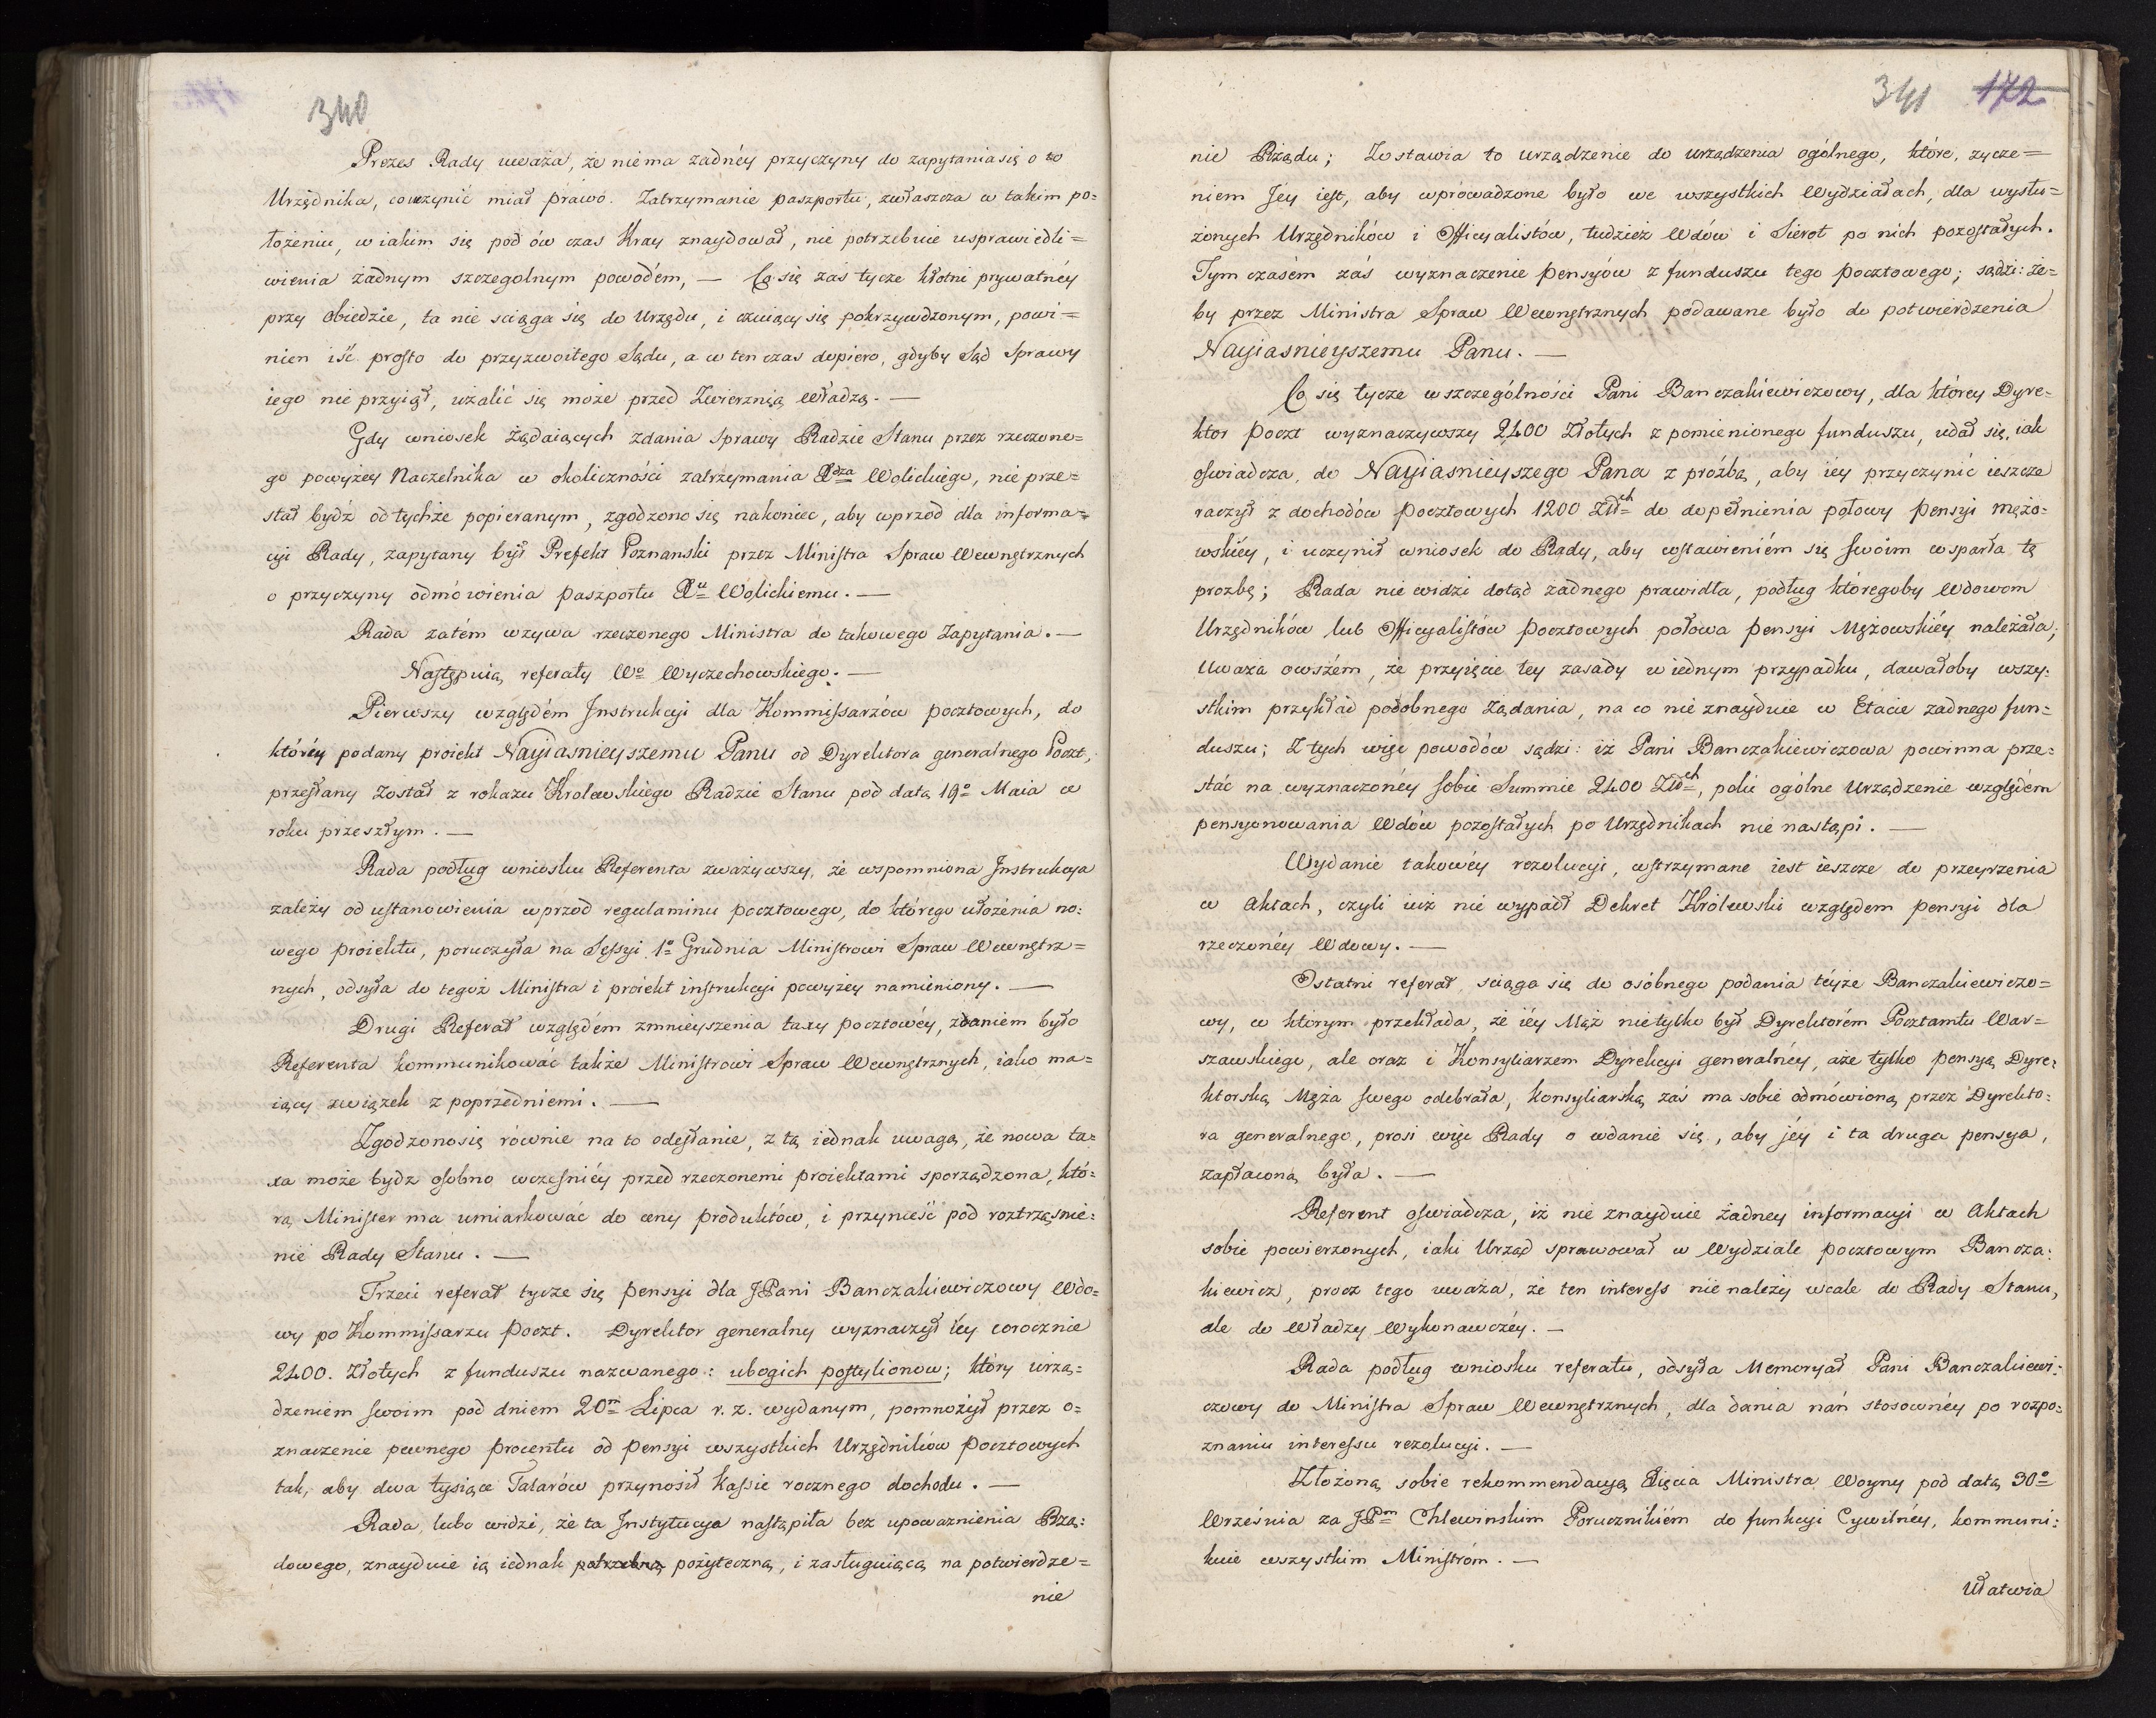 340
Prezes Rady uważa, że niema żadnéy przyczyny do zapytania się o to
Urzędnika, co uczynić miał prawo. Zatrzymanie paszportu, zwłaszcza w takim po=
łożeniu, w iakim się pod ów czas Kray znaydował, nie potrzebuie usprawiedli=
wienia żadnym szczegolnym powodém, — Co się zaś tycze kłotni prywatnéy
przy obiedzie, ta nie sciąga się do Urzędu, i czuiący się pokrzywdzonym, powi=
nien iść prosto do przyzwoitego Sądu, a w ten czas dopiero, gdyby Sąd Sprawy
iego nie przyiął, użalić się może przed Zwierznią Władzą. —
Gdy wniosek żądaiących zdania Sprawy Radzie Stanu przez rzeczone=
go powyżey Naczelnika w okoliczności zatrzymania Xdza Wolickiego, nie prze=
stał bydź od tychże popieranym, zgodzono się nakoniec, aby wprzod dla informa=
cyi Rady, zapytany był Prefekt Poznanski przez Ministra Spraw Wewnętrznych
o przyczyny odmówienia paszportu Xu Wolickiemu. —
Rada zatém wzywa rzeczonego Ministra do takowego Zapytania. —
Następuią referaty Wo Wyczechowskiego. —
Pierwszy względém Instrukcyi dla Kommissarzów pocztowych, do
któréy podany proiekt Nayiasnieyszemu Panu od Dyrektora generalnego Poczt,
przesłany został z rokazu Krolewskiego Radzie Stanu pod datą 19o Maia w
roku przeszłym. —
Rada podług wniosku Referenta zważywszy, że wspomniona Instrukcya
zależy od ustanowienia wprzod regulaminu pocztowego, do którego ułożenia no=
wego proiektu, poruczyła na Sessyi 1o Grudnia Ministrowi Spraw Wewnętrz=
nych, odsyła do tegoż Ministra i proiekt instrukcyi powyżey namieniony. —
Drugi Referat względém zmnieyszenia taxy pocztowéy, zdaniem było
Referenta kommunikować także Ministrowi Spraw Wewnętrznych, iako ma=
iący związek z poprzedniemi. —
Zgodzono się równie na to odesłanie, z tą iednak uwagą, że nowa ta=
xa może bydz osobno wcześniéy przed rzeczonemi proiektami sporządzona, któ=
rą Minister ma umiarkować do ceny produktów, i przynieść pod roztrząsnie=
nie Rady Stanu. —
Trzeci referat tycze się pensyi dla JPani Banczakiewiczowy Wdo=
wy po Kommissarzu Poczt. Dyrektor generalny wyznaczył iéy corocznie
2400. Złotych z funduszu nazwanego: ubogich postylionow; który urzą=
dzeniem swoim pod dniem 20m Lipca r. z. wydanym, pomnożył przez o=
znaczenie pewnego procentu od pensyi wszystkich Urzędników pocztowych
tak, aby dwa tysiące Talarów przynosił kassie rocznego dochodu. —
Rada, lubo widzi, że ta Instytucya nastąpiła bez upoważnienia Rzą=
dowego, znayduie ią iednak potrzebną pożyteczną, i zasługuiącą na potwierdze=
nie
341 172
nie Rządu; Zostawia to urządzenie do urządzenia ogólnego, które, życze=
niem Jéy iest, aby wprowadzone było we wszystkich Wydziałach, dla wysłu=
żonych Urzędników i Officyalistów, tudzież Wdów i Sierot po nich pozostałych.
Tymczasém zaś wyznaczenie pensyów z funduszu tego pocztowego; sądzi: że=
by przez Ministra Spraw Wewnętrznych podawane było do potwierdzenia
Nayiasnieyszemu Panu. —
Co się tycze w szczególności Pani Banczakiewiczowy, dla którey Dyre=
ktor poczt wyznaczywszy 2400 Złotych z pomienionego funduszu, udał się, iak
oświadcza, do Nayiasnieyszego Pana z proźbą, aby iéy przyczynić ieszcze
raczył z dochodów pocztowych 1200 Złłch do dopełnienia połowy pensyi mężo=
wskiéy, i uczynił wniosek do Rady, aby wstawieniém się swoim wsparła tę
prozbę; Rada nie widzi dotąd żadnego prawidła, podług któregoby Wdowom
Urzędników lub Officyalistów pocztowych połowa pensyi Mężowskiéy należała;
Uważa owszém, że przyięcie tey zasady w iednym przypadku, dawałoby wszy=
stkim przykład podobnego żądania, na co nie znayduie w Etacie żadnego fun=
duszu; Z tych więc powodów sądzi: iż Pani Banczakiewiczowa powinna prze=
stać na wyznaczonéy sobie Summie 2400 Złłch, poki ogólne Urządzenie względém
pensyonowania Wdów pozostałych po Urzędnikach nie nastąpi. —
Wydanie takowéy rezolucyi, wstrzymane iest ieszcze do przeyrzenia
w Aktach, czyli iuż nie wypadł Dekret Królewski względem pensyi dla
rzeczonéy Wdowy. —
Ostatni referat, sciąga się do osóbnego podania téyże Banczakiewiczo=
wy, w ktorym przekłada, że iéy Mąż nietylko był Dyrektorém Pocztamtu War=
szawskiego, ale oraz i Konsyliarzem Dyrekcyi generalnéy, a że tylko pensyą Dyre=
ktorską Męża swego odebrała, Konsyliarską zaś ma sobie odmówioną przez Dyrekto=
ra generalnego, prosi więc Rady o wdanie się, aby jéy i ta druga pensya,
zapłaconą była. —
Referent oświadcza, iż nie znayduie żadney informacyi w Aktach
sobie powierzonych, iaki Urząd sprawował w Wydziale pocztowym Bancza=
kiewicz, procz tego uważa, że ten interess nie należy wcale do Rady Stanu,
ale do Władzy Wykonawczéy. —
Rada podług wniosku referatu, odsyła Memoryał Pani Banczakiewi=
czowy do Ministra Spraw Wewnętrznych, dla dania nań stosownéy po rozpo=
znaniu interessu rezolucyi. —
Złożoną sobie rekommendacyą Xięcia Ministra Woyny pod datą 30o
Września za JPm Chlewinskim Porucznikiém do funkcyi Cywilnéy, kommuni=
kuie wszystkim Ministróm. —
Ułatwia